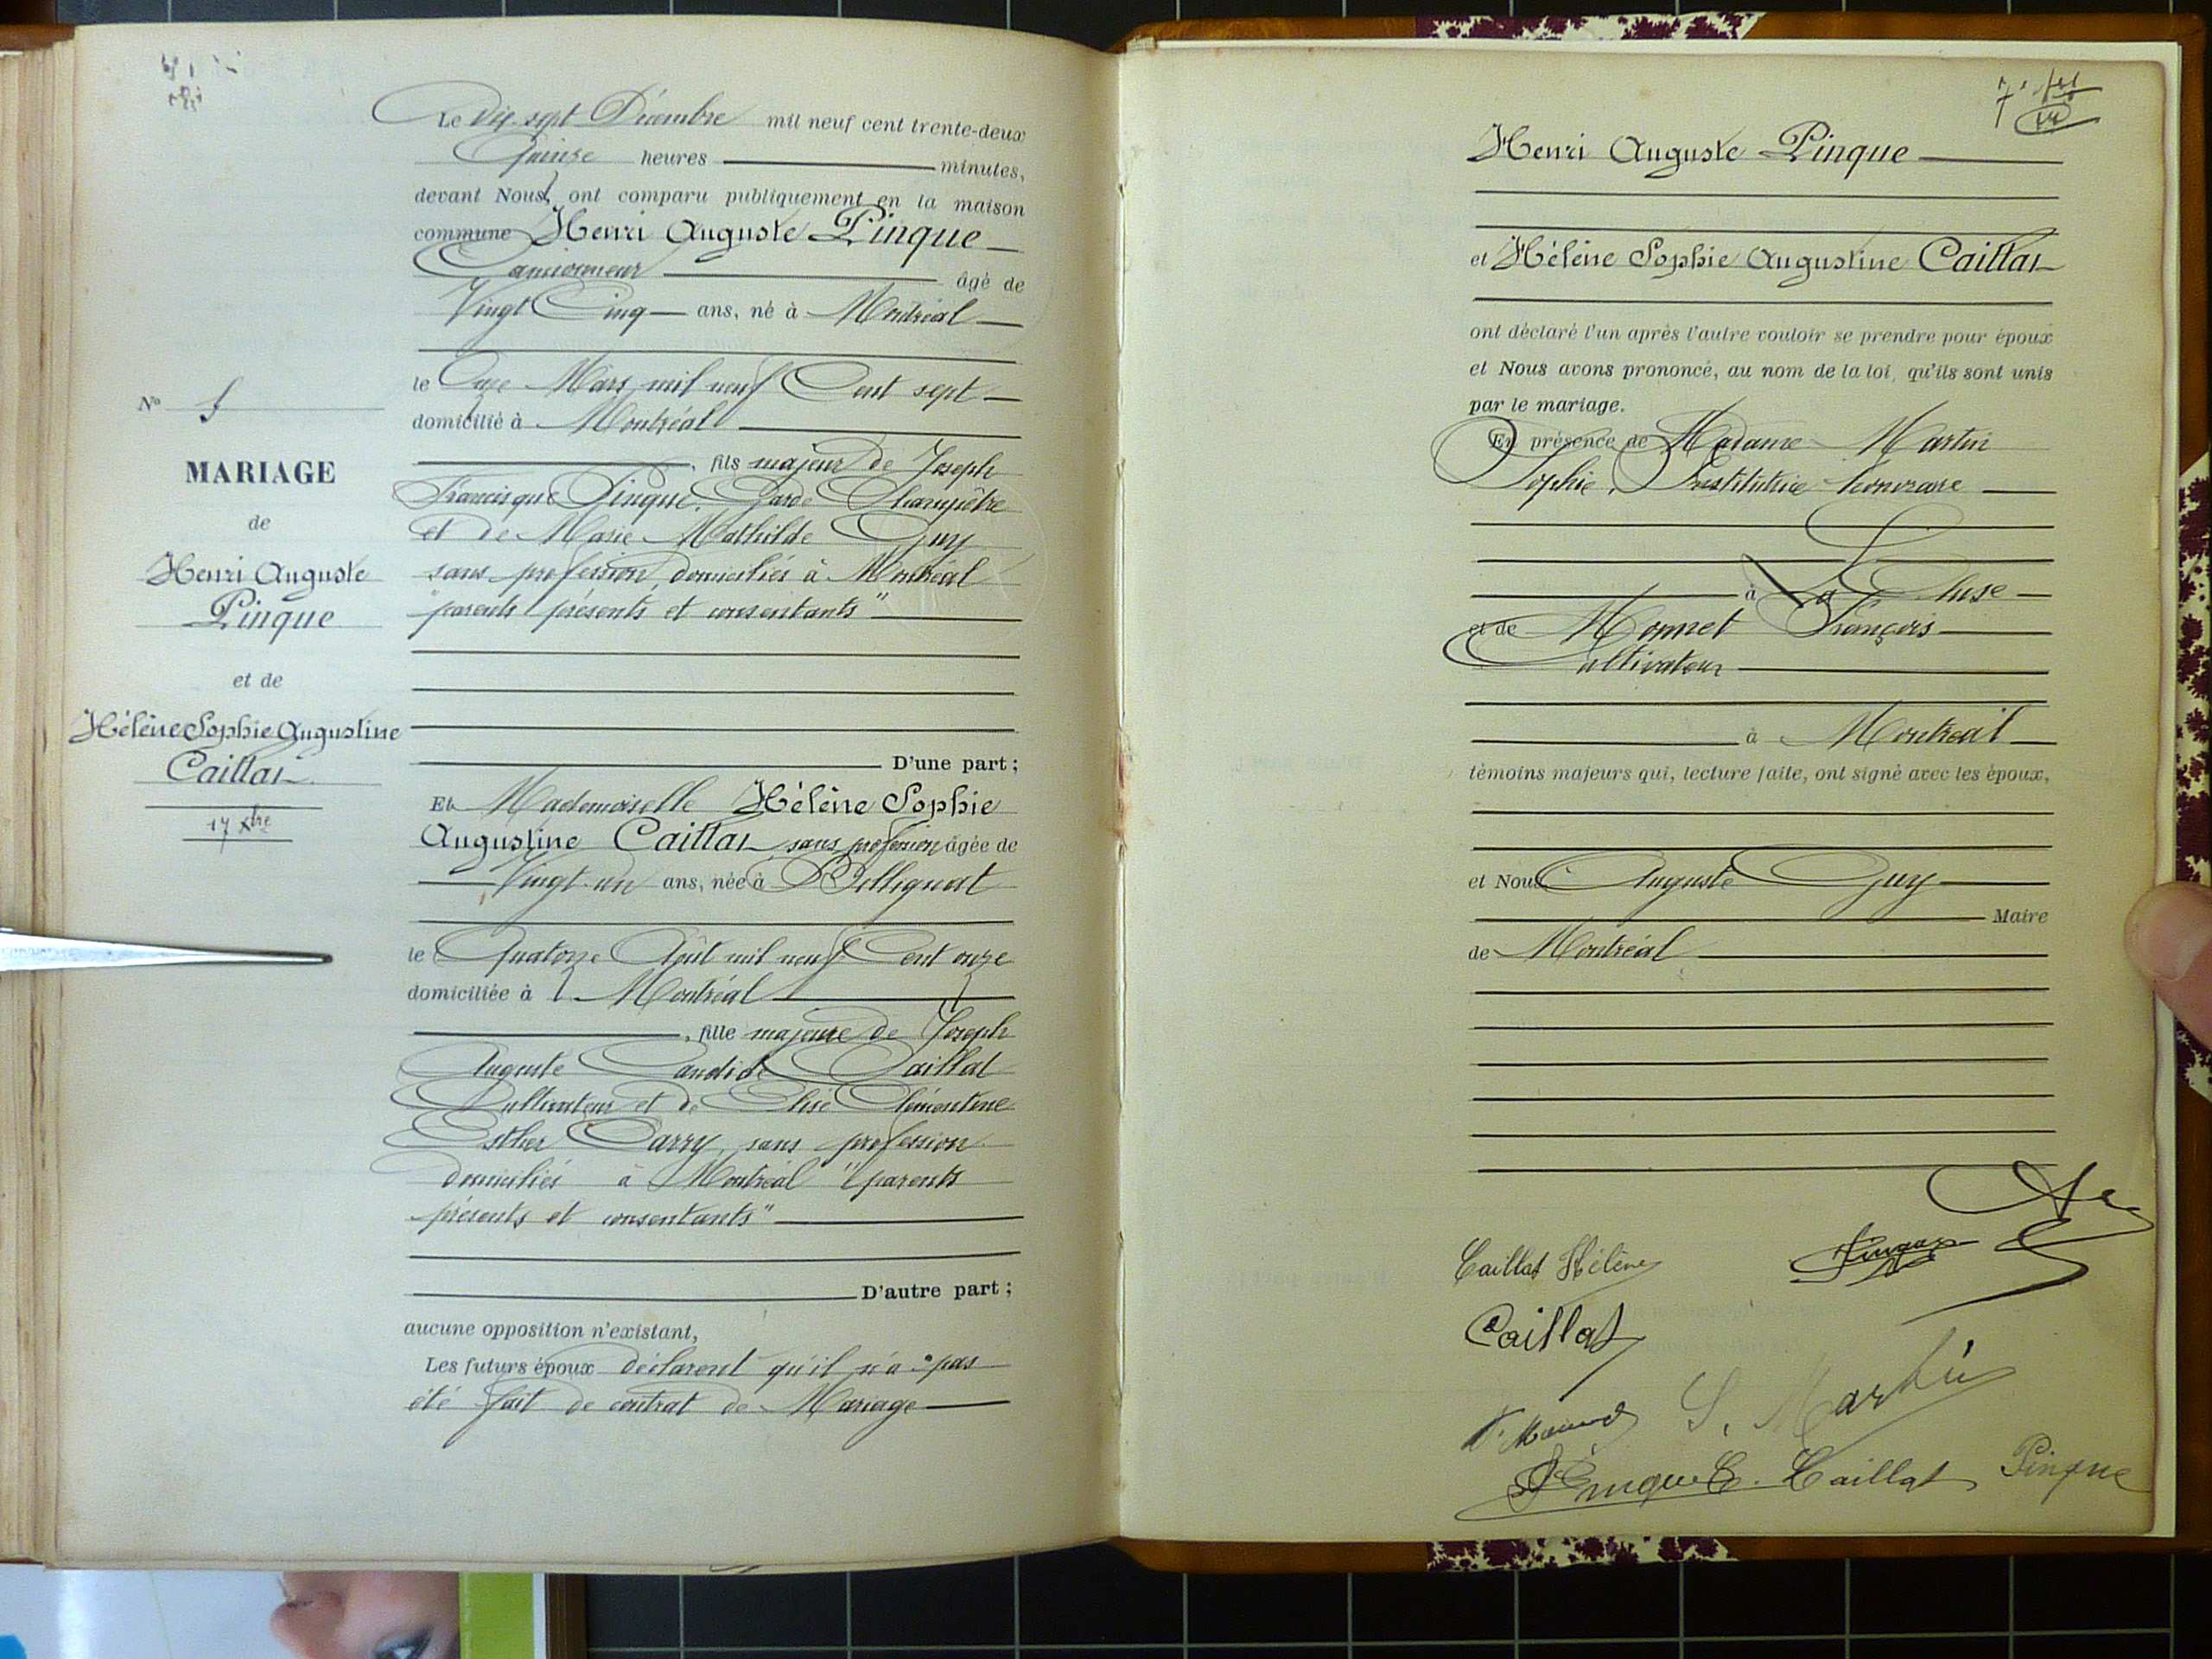 Le Dix-sept Décembre mil neuf cent trente-deux
Quinze heures minutes,
devant Nous, ont comparu publiquement en la maison
commune Henri Auguste Pinque
Camionneur âgé de
Vingt Cinq ans, né à Montréal
le Onze Mars mil neuf Cent sept
domicilié à Montréal
, fils majeur de Joseph
Francisque Pinque, Garde Champêtre
et de Marie Mathilde Guy
sans profession, domiciliés à Montréal
"parents présents et consentants"
D'une part ;
Et Mademoiselle Hélène Sophie
Augustine Caillat sans profession âgée de
Vingt-un ans, née à Belligna​t
le Quatorze Août mil neuf Cent onze
domiciliée à Montréal
, fille majeure de Joseph
Auguste Candide Caillat
Cultivateur et de Elise Clémentine
Esther Carry, sans profession
domiciliés à Montréal "parents
présents et consentants"
D'autre part ;
aucune opposition n'existant,
Les futurs époux déclarent qu'il n'a pas
été fait de contrat de Mariage
No
MARIAGE
de
Henri Auguste
Pinque
et de
Hélène Sophie Augustine
Caillat
17 Xbre
Henri Auguste Pinque
et Hélène Sophie Augustine Caillat
ont déclaré l'un après l'autre vouloir se prendre pour époux
et Nous avons prononcé, au nom de la loi, qu'ils sont unis
par le mariage.
En présence de Madame Martin
Sophie, Institutrice honoraire
à La Cluse
et de Monnet François
Cultivateur
à Montréal
témoins majeurs qui, lecture faite, ont signé avec les époux,
et Nous Auguste Guy
Maire
de Montréal
Caillat Hélène Pinque
Caillat
S. Martin
Pinque E. Caillat Pinque